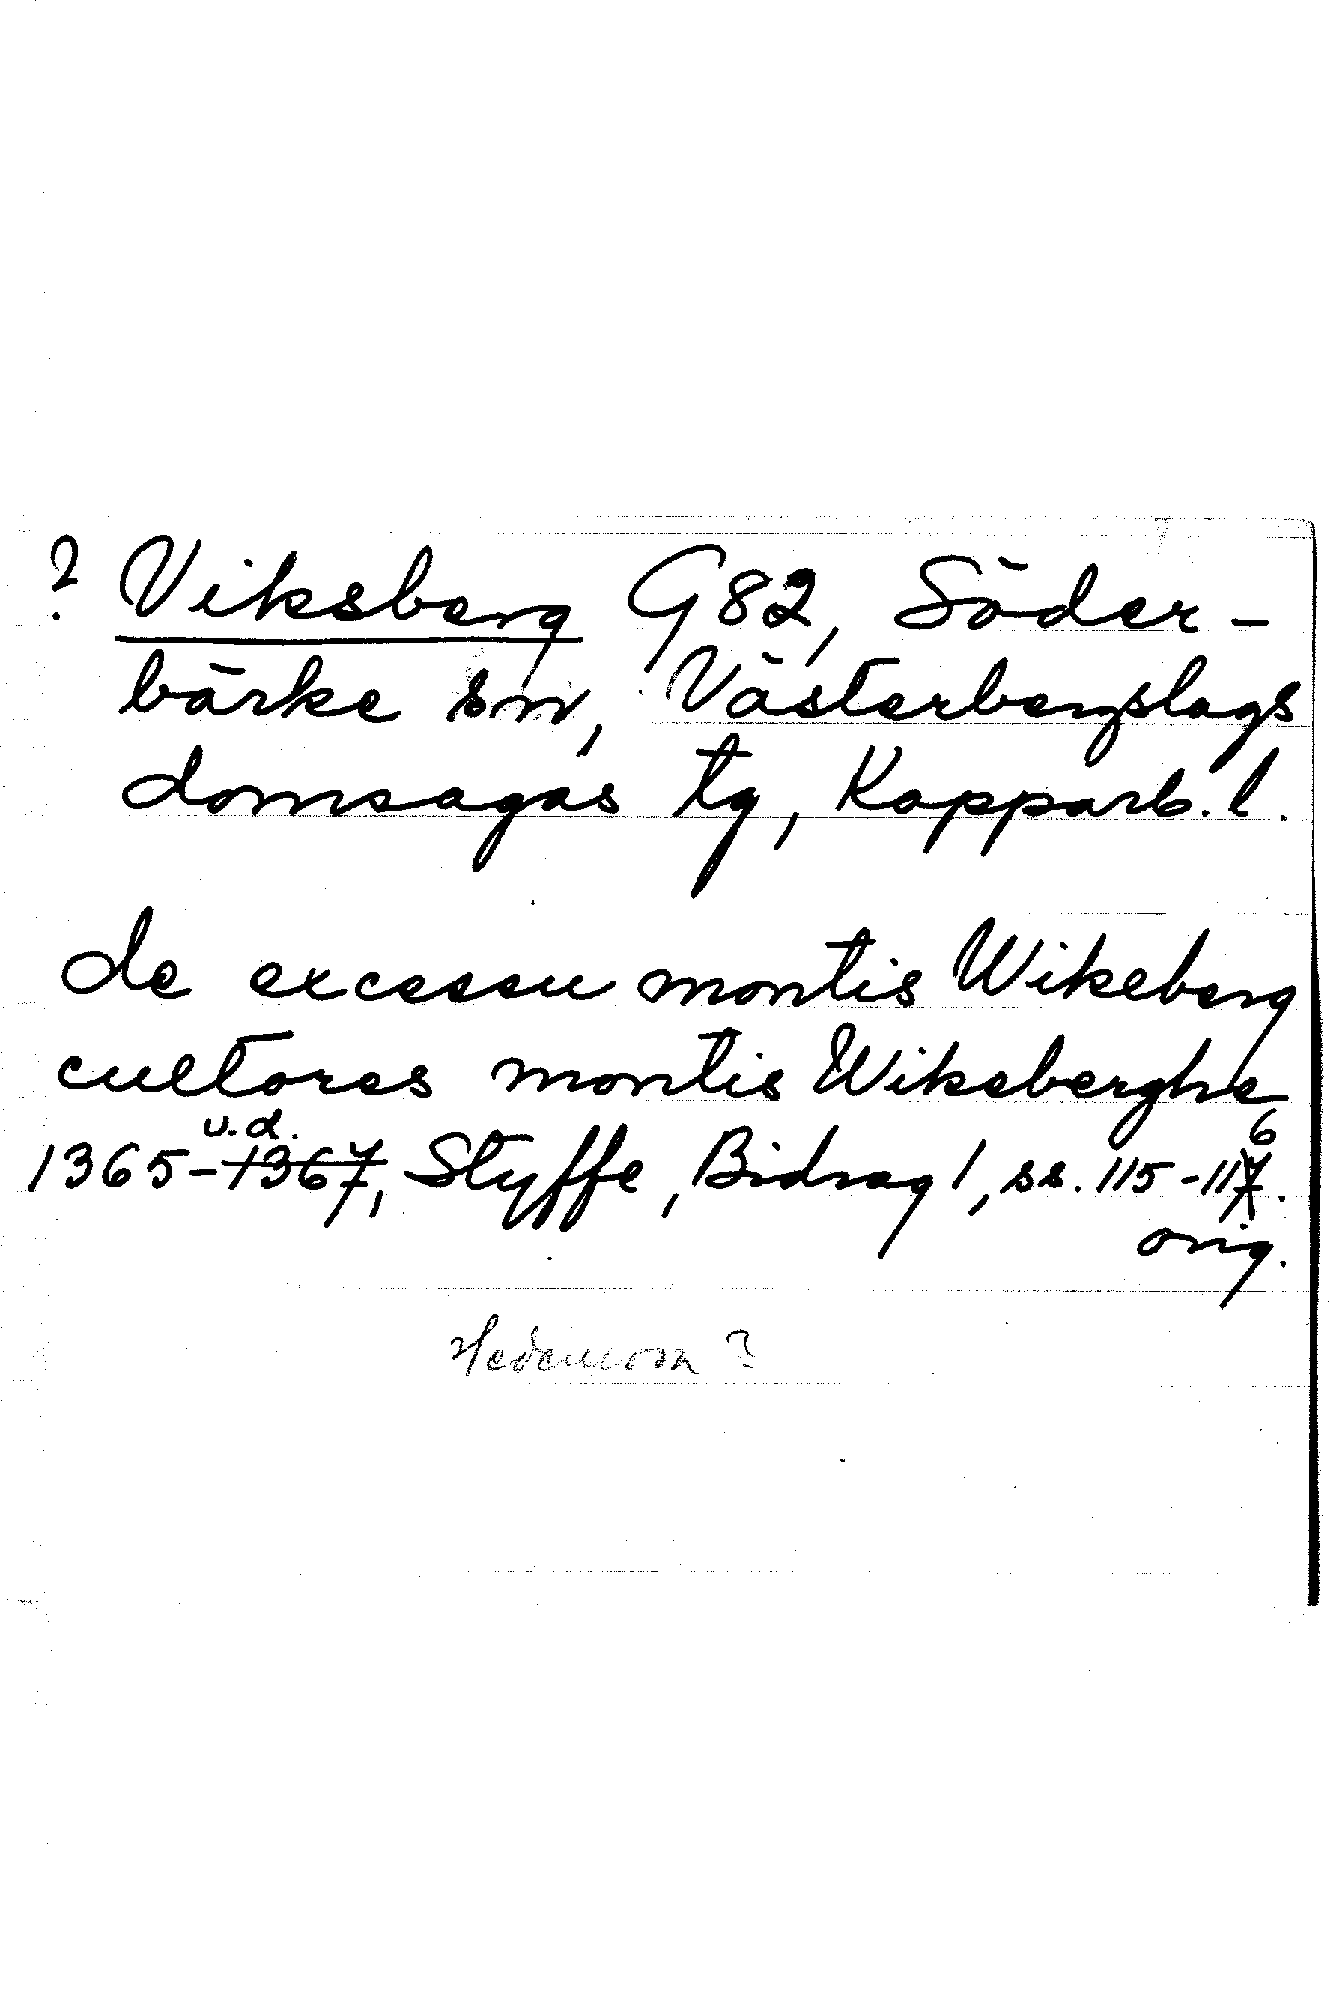 ? Viksberg G82, Söder-
bärke sn, Västerbergslags
domsagas tg, Kopparb. l.
de excessu montis Wikeberg
cultores montis Wikeberghe
u.d. 6
1365-1367, Styffe, Bidrag 1, ss. 115-117.
orig.
Hedemora ?